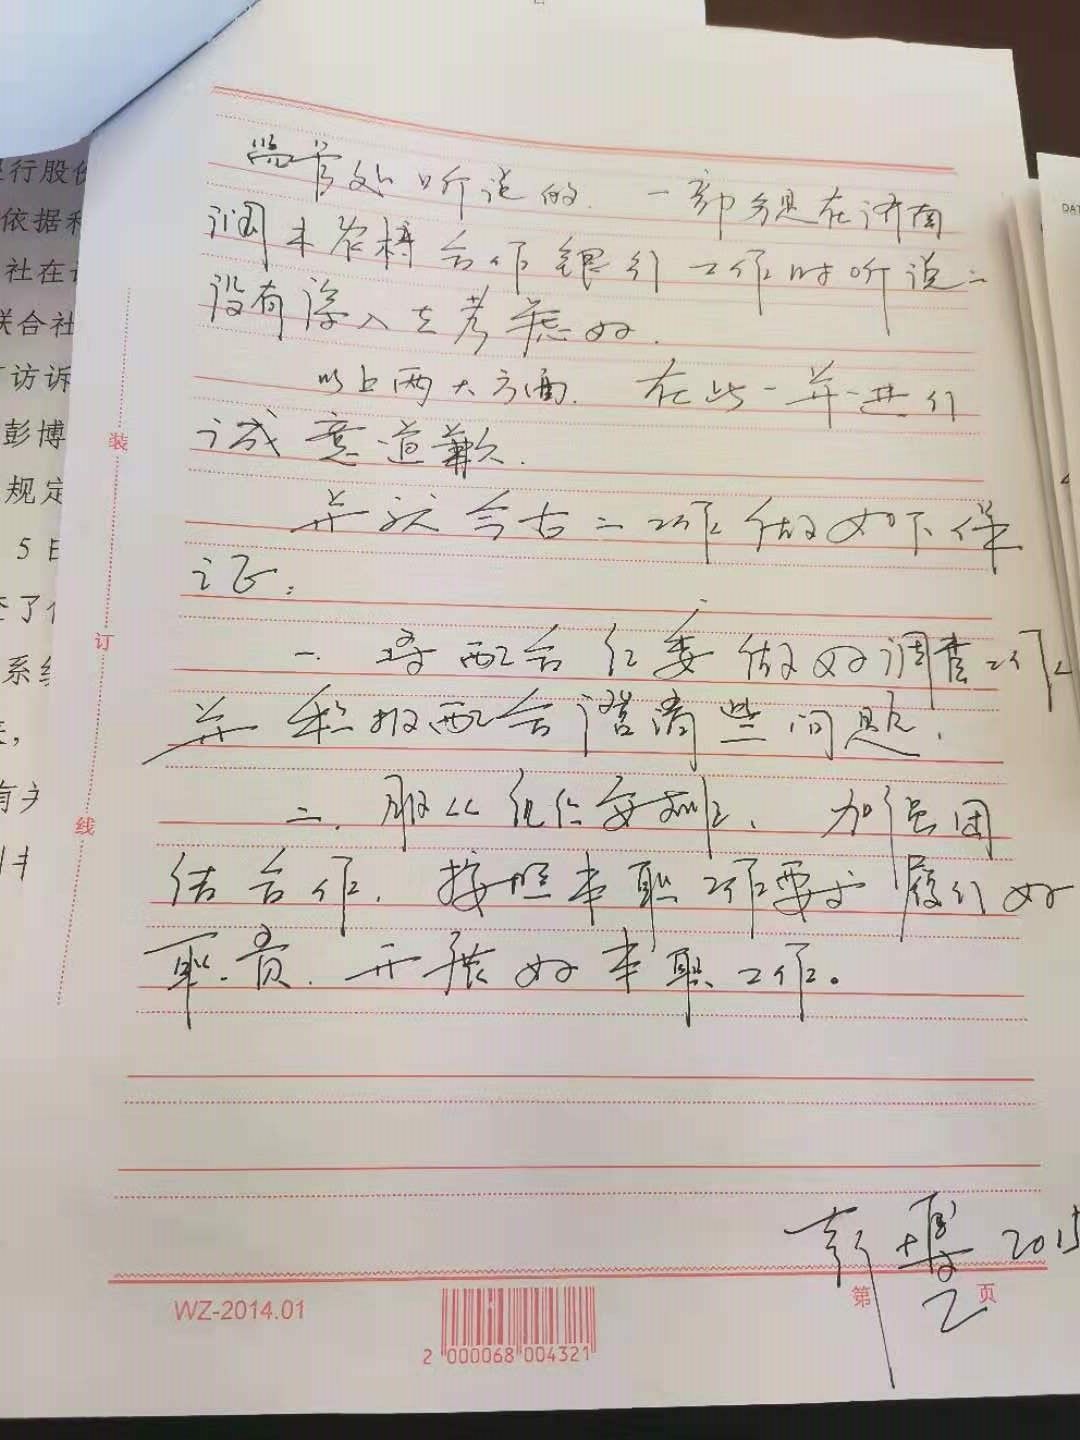 监管处听说的，一部分是在济南
润丰农村合作银行工作时听说，
没有深入去考虑好.
以上两大方面，在此一并进行
诚意道歉.
并就今后工作做如下保
证：
一、将配合纪委做好调查工作，
并积极配合澄清些问题，
二、服从组织安排，加强团
结合作，按照本职工作要求履行好
职责，开展好本职工作。
彭博 2015
第 2 页
WZ-2014.01
2 000068 004321
装
订
线
行股份
依据和
社在
联合社
访诉
彭博
规定
5日
查了
系统
有关